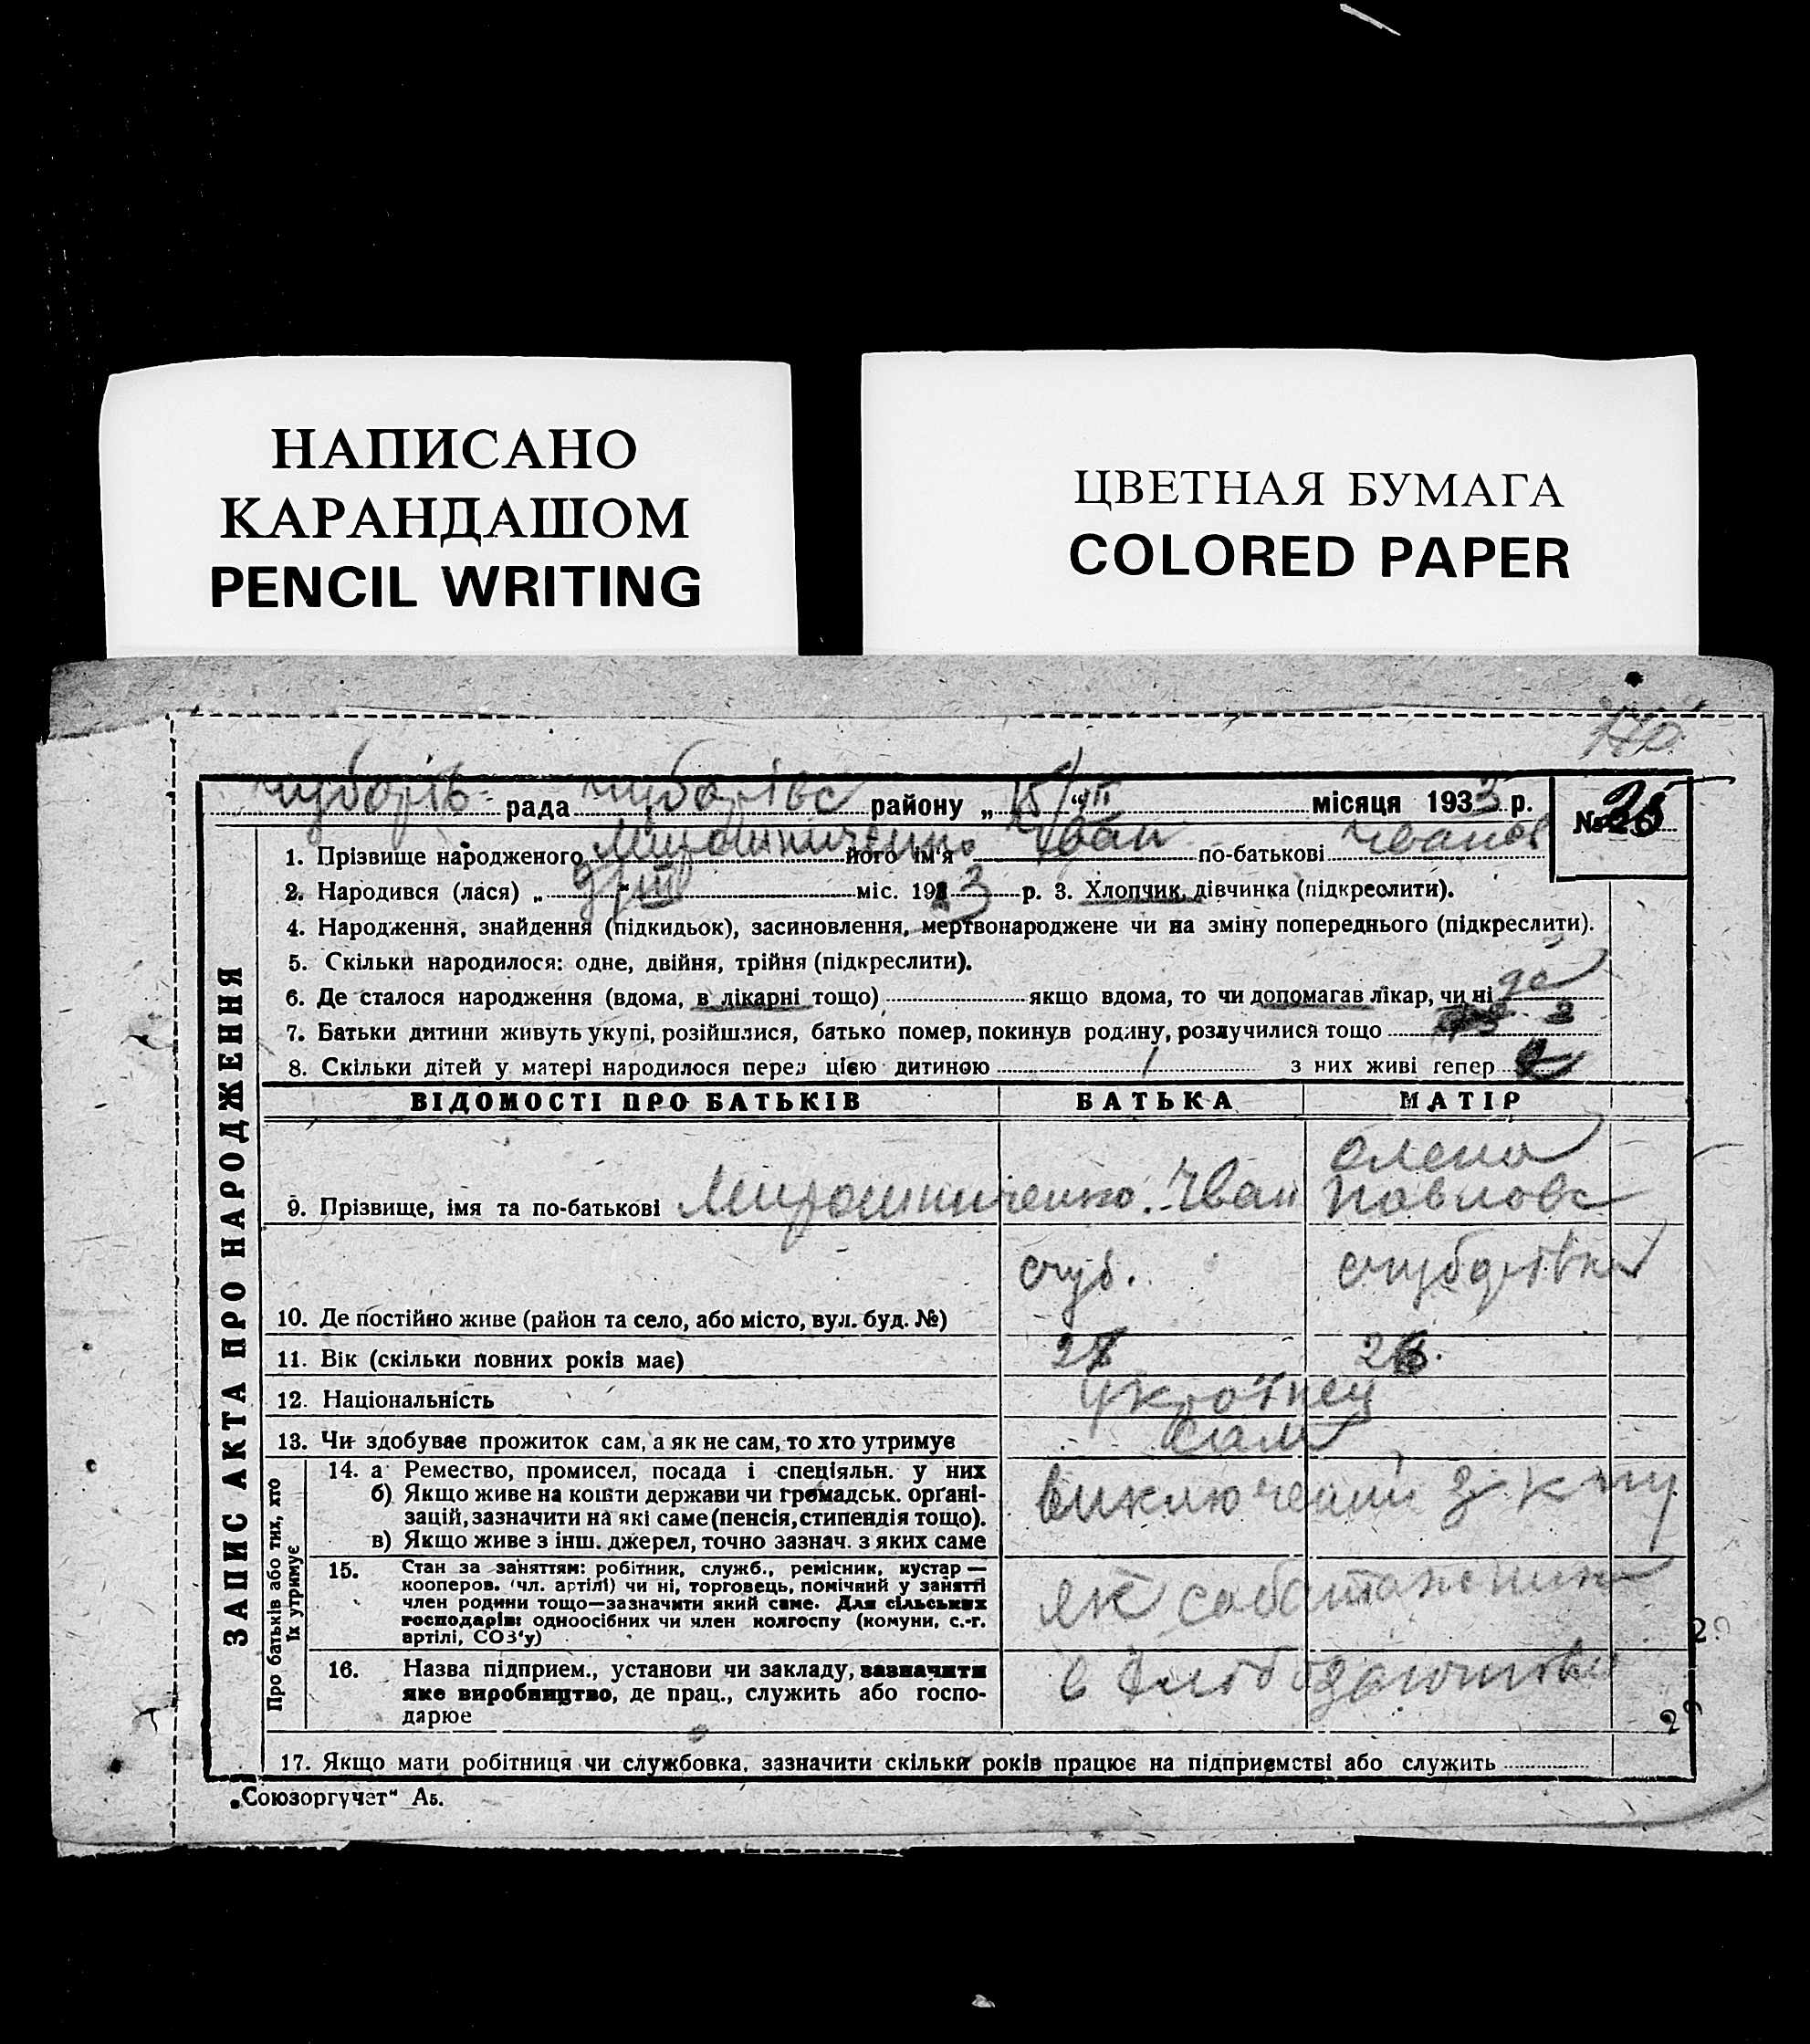 НАПИСАНО
КАРАНДАШОМ
PENCIL WRITING
ЦВЕТНАЯ БУМАГА
COLORED PAPER
Чубарів рада Чубарівс району „15“ VII місяця 1933 р. № 25
1. Прізвище народженого Мирошниченко його ім'я Иван по-батькові Иванов
2. Народився (лася) „ міс. 193 3 р. 3. Хлопчик, дівчинка (підкреслити).
4. Народження, знайдення (підкидьок), засиновлення, мертвонароджене чи на зміну попереднього (підкреслити).
5. Скільки народилося: одне, двійня, трійня (підкреслити).
6. Де сталося народження (вдома, в лікарні тощо) якщо вдома, то чи допомагав лікар, чи ні
7. Батьки дитини живуть укупі, розійшлися, батько помер, покинув родину, розлучилися тощо
8. Скільки дітей у матері народилося перед цією дитиною 1 з них живі тепер
ВІДОМОСТІ ПРО БАТЬКІВ БАТЬКА МАТІР
9. Прізвище, імя та по-батькові Мирошниченко. Иван Олена Павловс
10. Де постійно живе (район та село, або місто, вул. буд. №)
11. Вік (скільки повних років має) 27 26.
12. Національність Украінец
13. Чи здобуває прожиток сам, а як не сам, то хто утримує Сам
14. а Ремество, промисел, посада і спеціяльн. у них
б) Якщо живе на кошти держави чи громадськ. орґані-
зацій, зазначити на які саме (пенсія, стипендія тощо).
в) Якщо живе з інш. джерел, точно зазнач. з яких саме
виключений з
15. Стан за заняттям: робітник, служб., ремісник, кустар —
кооперов. (чл. артілі) чи ні, торговець, помічний у занятті
член родини тощо—зазначити який саме. Для сільських
господарів: одноосібних чи член колгоспу (комуни, с.-г.
артілі, СОЗ'у)
як саботажник
16. Назва підприєм., установи чи закладу, зазначити
яке виробництво, де прац., служить або госпо-
дарює
в хлібозаготівлі
17. Якщо мати робітниця чи службовка, зазначити скільки років працює на підприємстві або служить
ЗАПИС АКТА ПРО НАРОДЖЕННЯ
Про батьків або тих, хто
їх утримує
„Союзоргучет“ Аб.